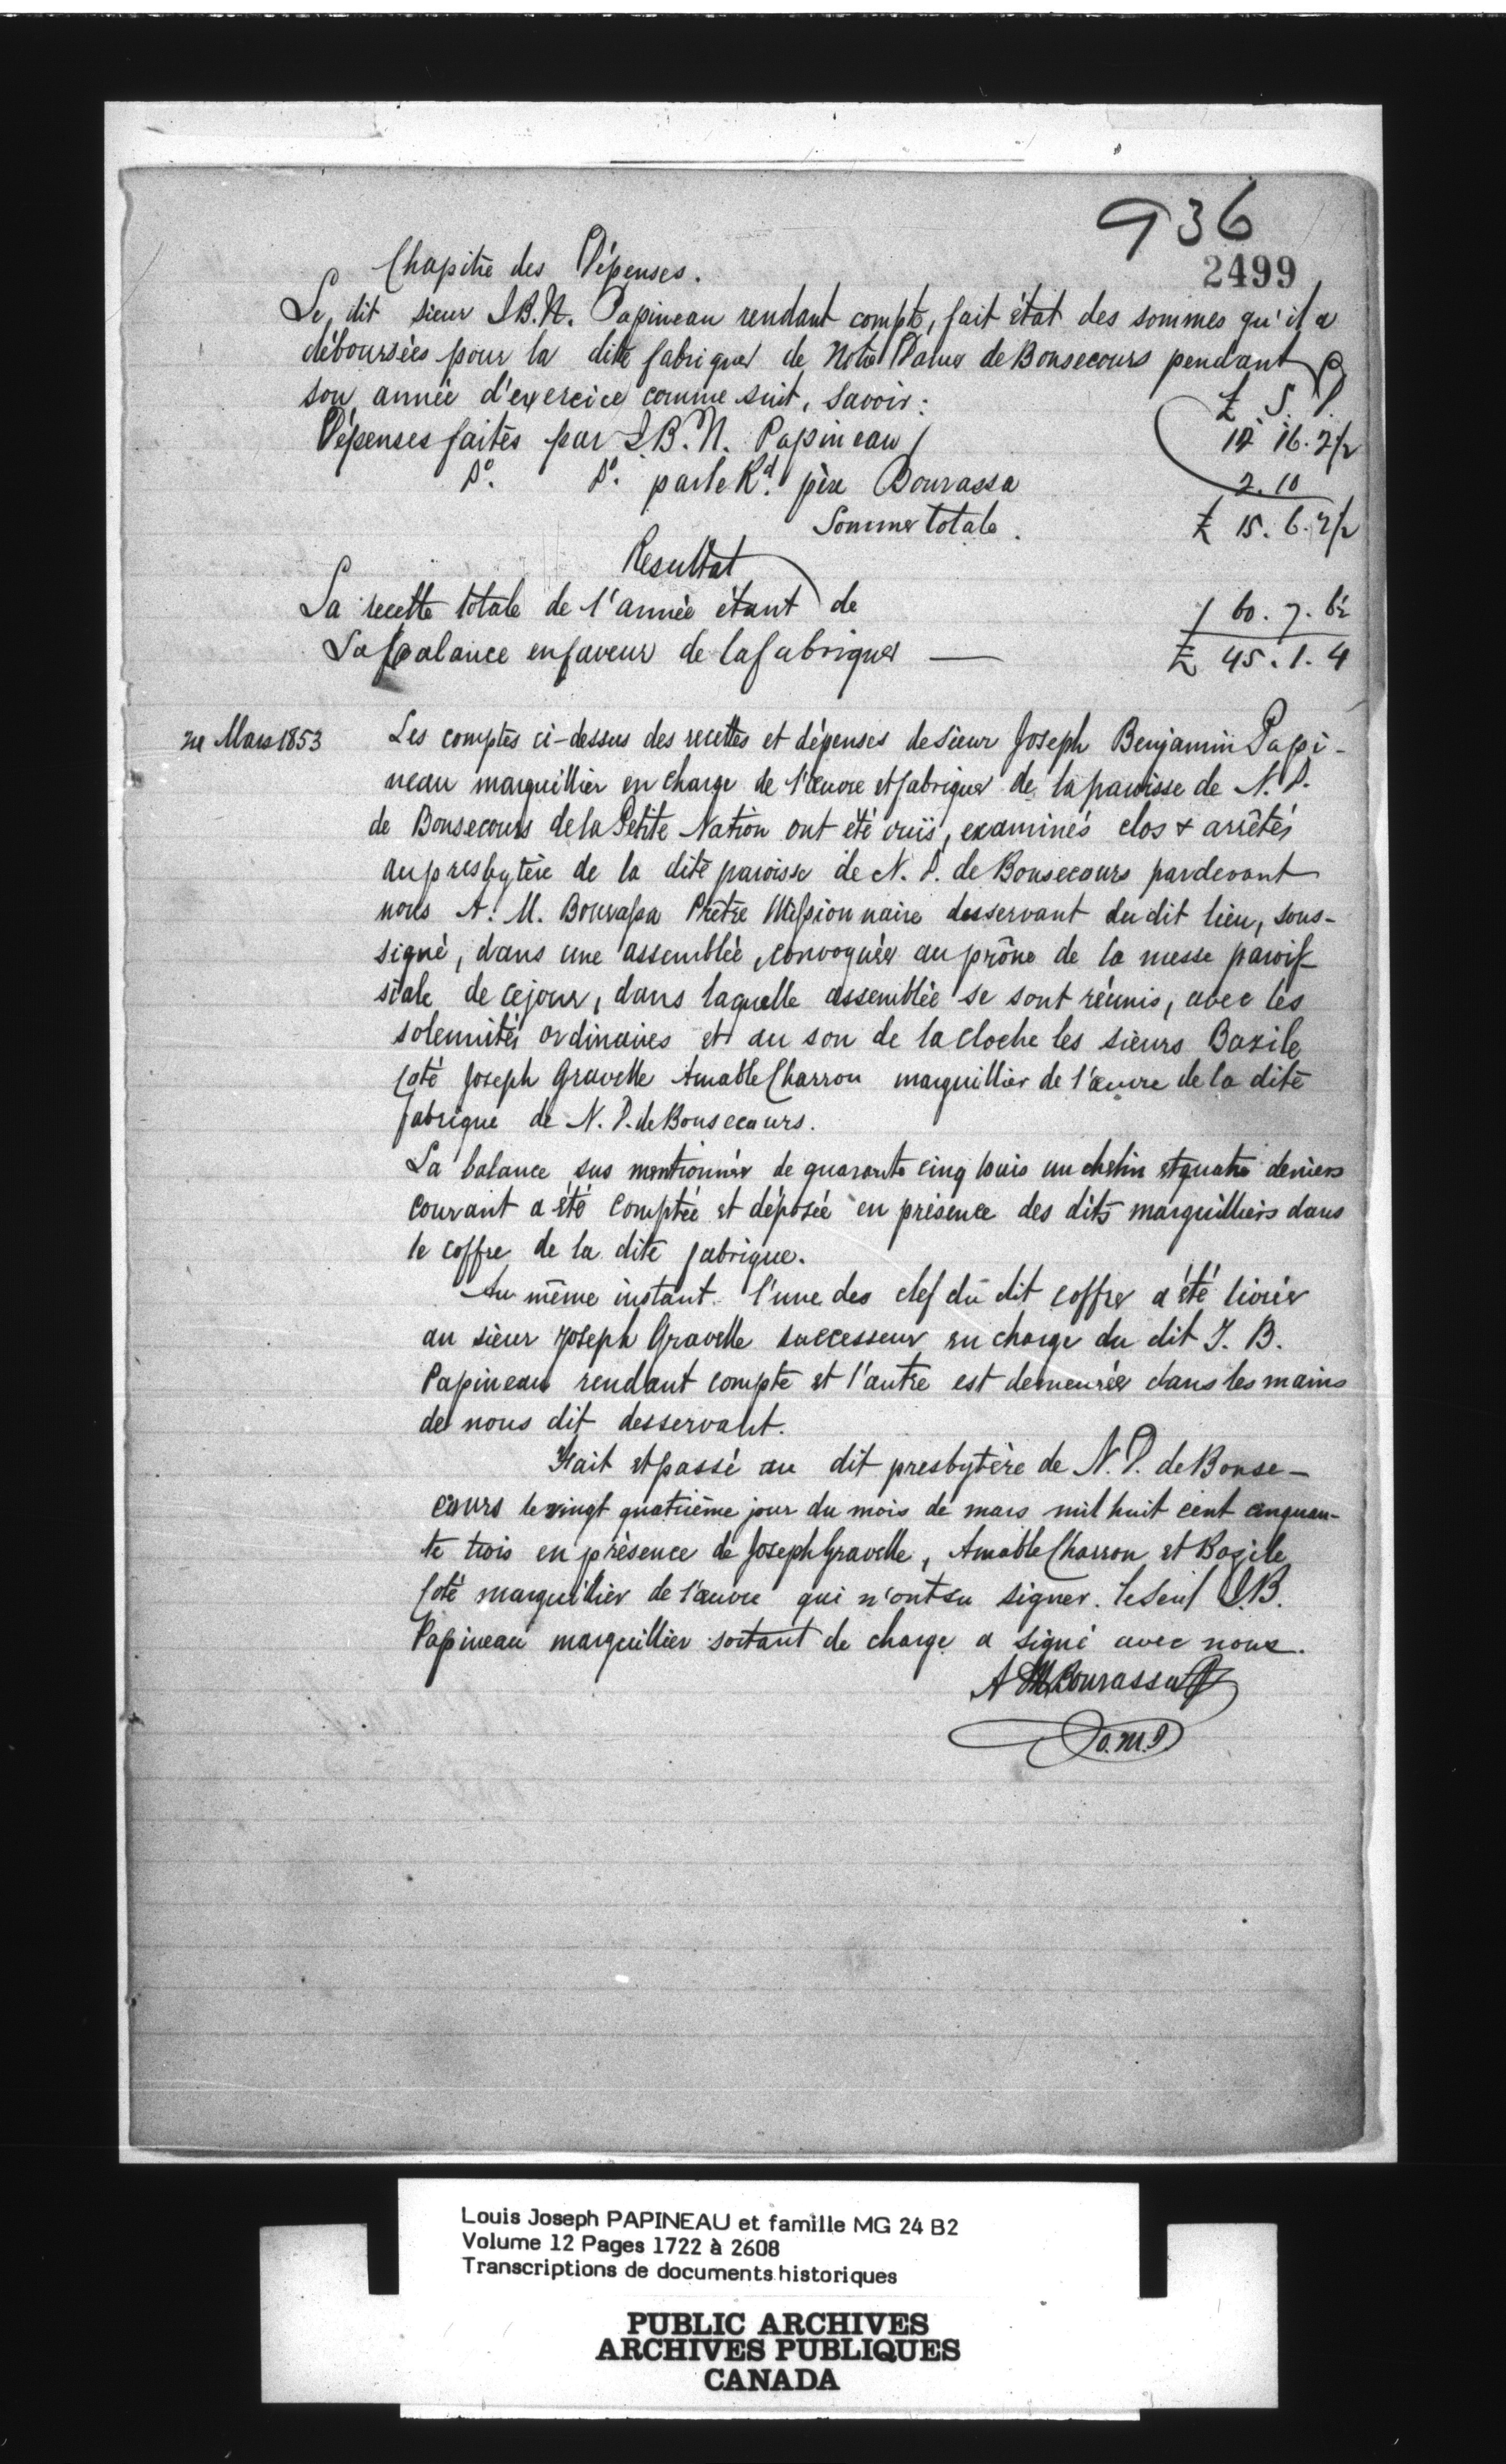 936
2499
Chapitre des Dépenses.
Le dit sieur J.B.N. Papineau rendant compte, fait état des sommes qu'il a
déboursées pour la dite fabrique de Notre Dame de Bonsecours pendant
son année d'exercice comme suit, savoir:
£ S. D.
Dépenses faites par J.B.N. Papineau 12 16. 2½
Do. Do. par le Rd. père Bourassa 2. 10
Somme totale. £ 15. 6. 2½
Resultat
La recette totale de l'année étant de 60. 7. 6½
La balance en faveur de la fabrique — £ 45. 1. 4
24 Mars 1853
Les comptes ci-dessus des recettes et dépenses de sieur Joseph Benjamin Papi-
neau marguillier en charge de l'œuvre et fabrique de la paroisse de N. D.
de Bonsecours de la Petite Nation ont été ouïs, examinés clos & arrêtés
au presbytère de la dite paroisse de N. D. de Bonsecours pardevant
nous A. M. Bourassa Prêtre Missionnaire desservant du dit lieu, sous-
signé, dans une assemblée, convoquée au prône de la messe parois-
siale de ce jour, dans laquelle assemblée se sont réunis, avec les
solennités ordinaires et au son de la cloche les sieurs Bazile
Coté Joseph Gravelle Amable Charron marguillier de l'œuvre de la dite
fabrique de N. D. de Bonsecours.
La balance sus mentionnée de quarante cinq louis un chelin et quatre deniers
courant a été comptée et déposée en présence des dits marguilliers dans
le coffre de la dite fabrique.
Au même instant l'une des clef du dit coffre a été livrée
au sieur Joseph Gravelle successeur en charge du dit J. B.
Papineau rendant compte et l'autre est demeurée dans les mains
de nous dit desservant.
Fait et passé au dit presbytère de N. D. de Bonse-
cours le vingt quatrième jour du mois de mars mil huit cent cinquan-
te trois en présence de Joseph Gravelle, Amable Charron et Bazile
Coté marguillier de l'œuvre qui n'ont su signer. le seul J.B.
Papineau marguillier sortant de charge a signé avec nous.
A M Bourassa Ptr
o.m.I
Louis Joseph PAPINEAU et famille MG 24 B2
Volume 12 Pages 1722 à 2608
Transcriptions de documents historiques
PUBLIC ARCHIVES
ARCHIVES PUBLIQUES
CANADA